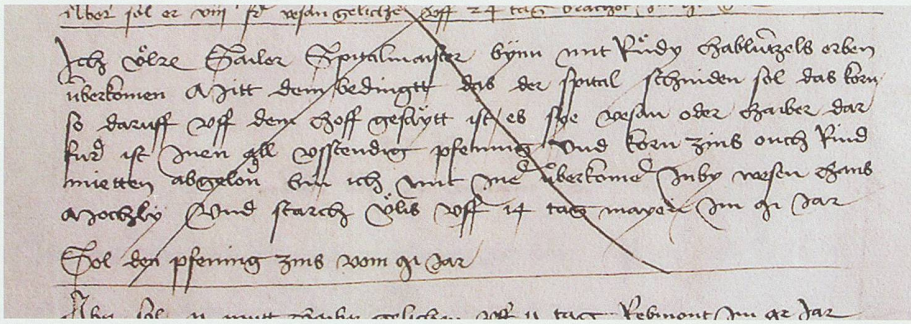 Aber sol er viii fr vesan gelichen uff 24 tag
Ich Ŏlre Sailer Spitalmaister bynn mit Rŭdy hablützels erben
überkomen Mitt dem bedingtt das der spital schniden sol das korn
so daruff uff dem hoff gesäytt ist es sye vesan oder haber dar
fur ist Inen all usstendig pfenning Und korn zins ouch Rind
mietten abgelon bin ich mit Ine überkome Inby wesen hans
Mochly Und starch Ŭlis uff 14 tag mayen Im 91 Jar
Sol den pfening zins vom 91 Jar
Aber sol 11 mutt haber gelichen uff 11 tag Rebmont Im 92 Jar